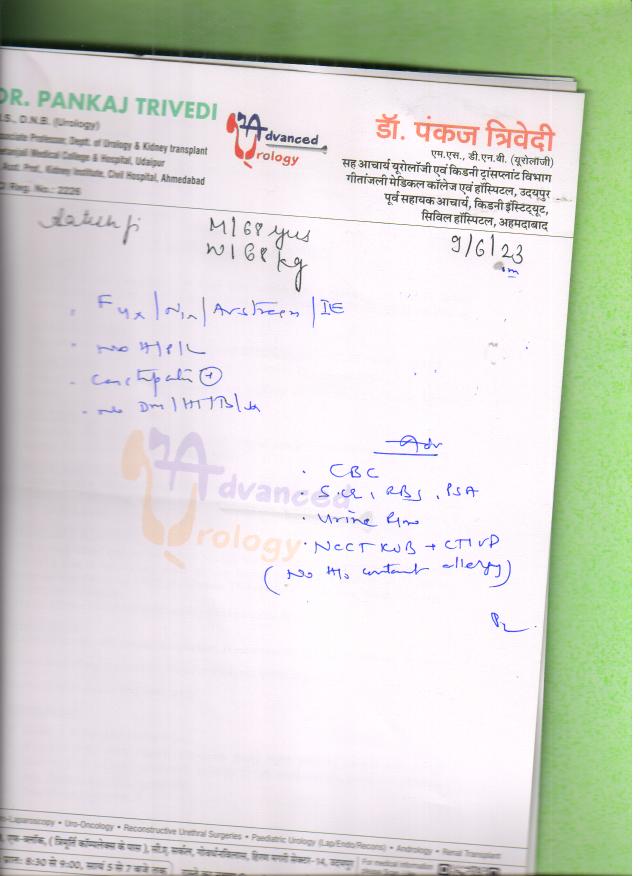 DR. PANKAJ TRIVEDI
.S., D.N.B. (Urology)
ssociate Professor, Deptt. of Urology & Kidney transplant
eetanjali Medical College & Hospital, Udaipur
Asst. Prof., Kidney Institute, Civil Hospital, Ahmedabad
Reg. No.: 2226
Advanced
Urology
डॉ. पंकज त्रिवेदी
एम.एस., डी.एन.बी. (यूरोलॉजी)
सह आचार्य यूरोलॉजी एवं किडनी ट्रांसप्लांट विभाग
गीतांजली मेडिकल कॉलेज एवं हॉस्पिटल, उदयपुर
पूर्व सहायक आचार्य, किडनी इंस्टिट्यूट,
सिविल हॉस्पिटल, अहमदाबाद
M/68 yrs
W/68 kg
9/6/23
No H/o
Constipation +
No DM/HT/TB/
Adv
CBC
S.Cr, RBS, PSA
Urine R/m
NCCT KUB + CT IVP
(No H/o contrast allergy)
Advanced
Urology
-Laparoscopy • Uro-Oncology • Reconstructive Urethral Surgeries • Paediatric Urology (Lap/Endo/Recons) • Andrology • Renal Transplant
एफ-ब्लॉक, (त्रिमूर्ति कॉम्पलेक्स के पास), सी.ए. सर्कल, गोवर्धनविलास, हिरण मगरी सेक्टर-14, उदयपुर
प्रातः 8:30 से 9:00, सायं 5 से 7 बजे तक
For medical information